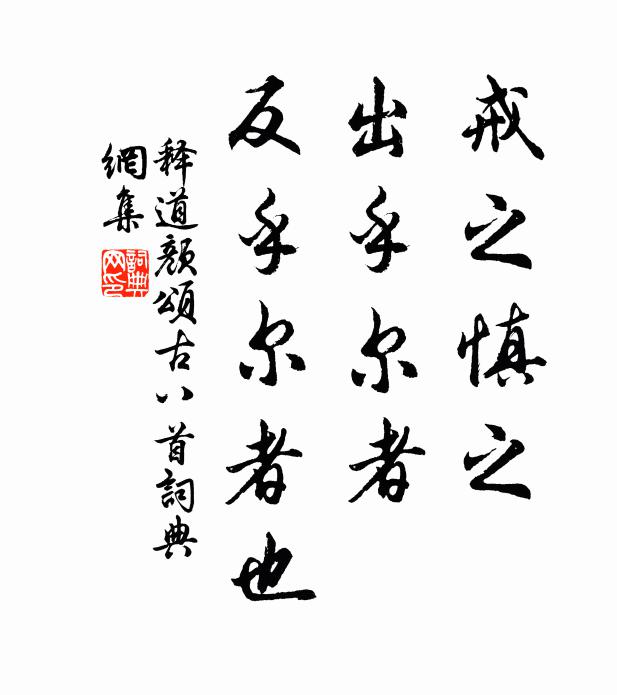 戒之慎之
出乎尔者
反乎尔者也
释道颜颂古八首詞典
網集
詞典
网印